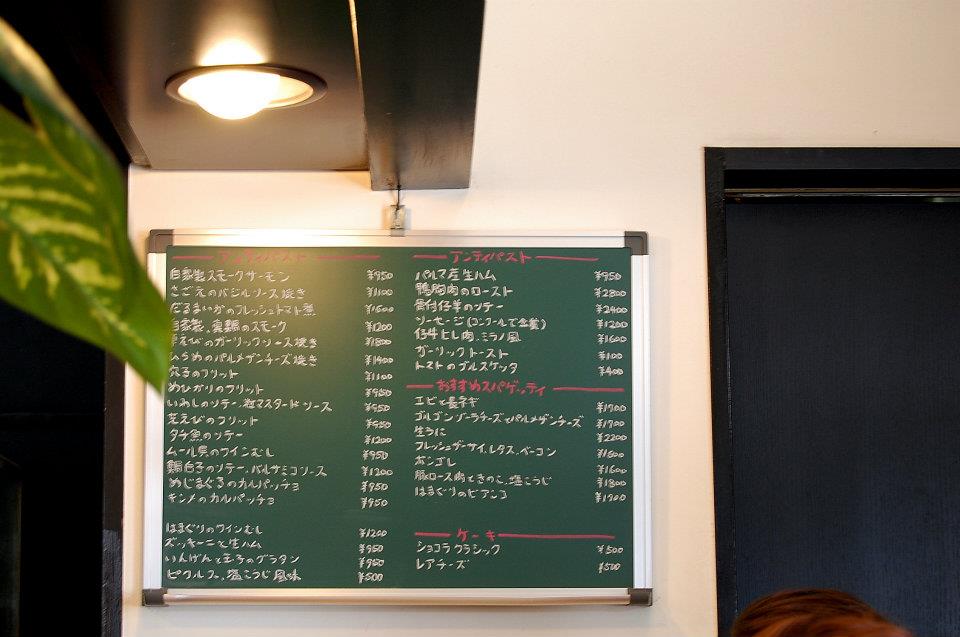 アンティパスト
自家製スモークサーモン ¥950
さざえのバジルソース焼き ¥1100
だるまいかのフレッシュトマト煮 ¥1600
自家製、鶏のスモーク ¥1200
芝えびのガーリックソース焼き ¥1800
ひらめのパルメザンチーズ焼き ¥1400
穴子のフリット ¥1100
めひかりのフリット ¥950
いわしのソテー、粒マスタードソース ¥950
芝えびのフリット ¥950
タチ魚のソテー ¥1200
ムール貝のワインむし ¥950
鯛白子のソテー、バルサミコソース ¥1200
めじまぐろのカルパッチョ ¥950
キンメのカルパッチョ ¥950
はまぐりのワインむし ¥1200
ズッキーニと生ハム ¥950
いんげんと玉子のグラタン ¥950
ピクルス、塩こうじ風味 ¥500
アンティパスト
パルマ産生ハム ¥950
鴨胸肉のロースト ¥2800
骨付仔羊のソテー ¥2400
ソーセージ ¥1200
仔牛ヒレ肉、ミラノ風 ¥1600
ガーリックトースト ¥100
トマトのブルスケッタ ¥400
おすすめスパゲッティ
エビと長ネギ ¥1700
ゴルゴンゾーラチーズとパルメザンチーズ ¥1700
生うに ¥2200
フレッシュザーサイ、レタス、ベーコン ¥1500
ボンゴレ ¥1600
豚ロース肉ときのこ、塩こうじ ¥1800
はまぐりのビアンコ ¥1700
ケーキ
ショコラクラシック ¥500
レアチーズ ¥500